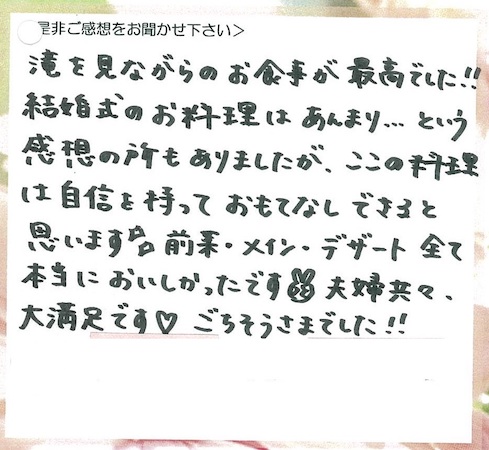 是非ご感想をお聞かせ下さい＞
滝を見ながらのお食事が最高でした!!
結婚式のお料理はあんまり…という
感想の所もありましたが、ここの料理
は自信を持っておもてなしできると
思います 前菜・メイン・デザート全て
本当においしかったです✌夫婦共々、
大満足です♡ ごちそうさまでした!!